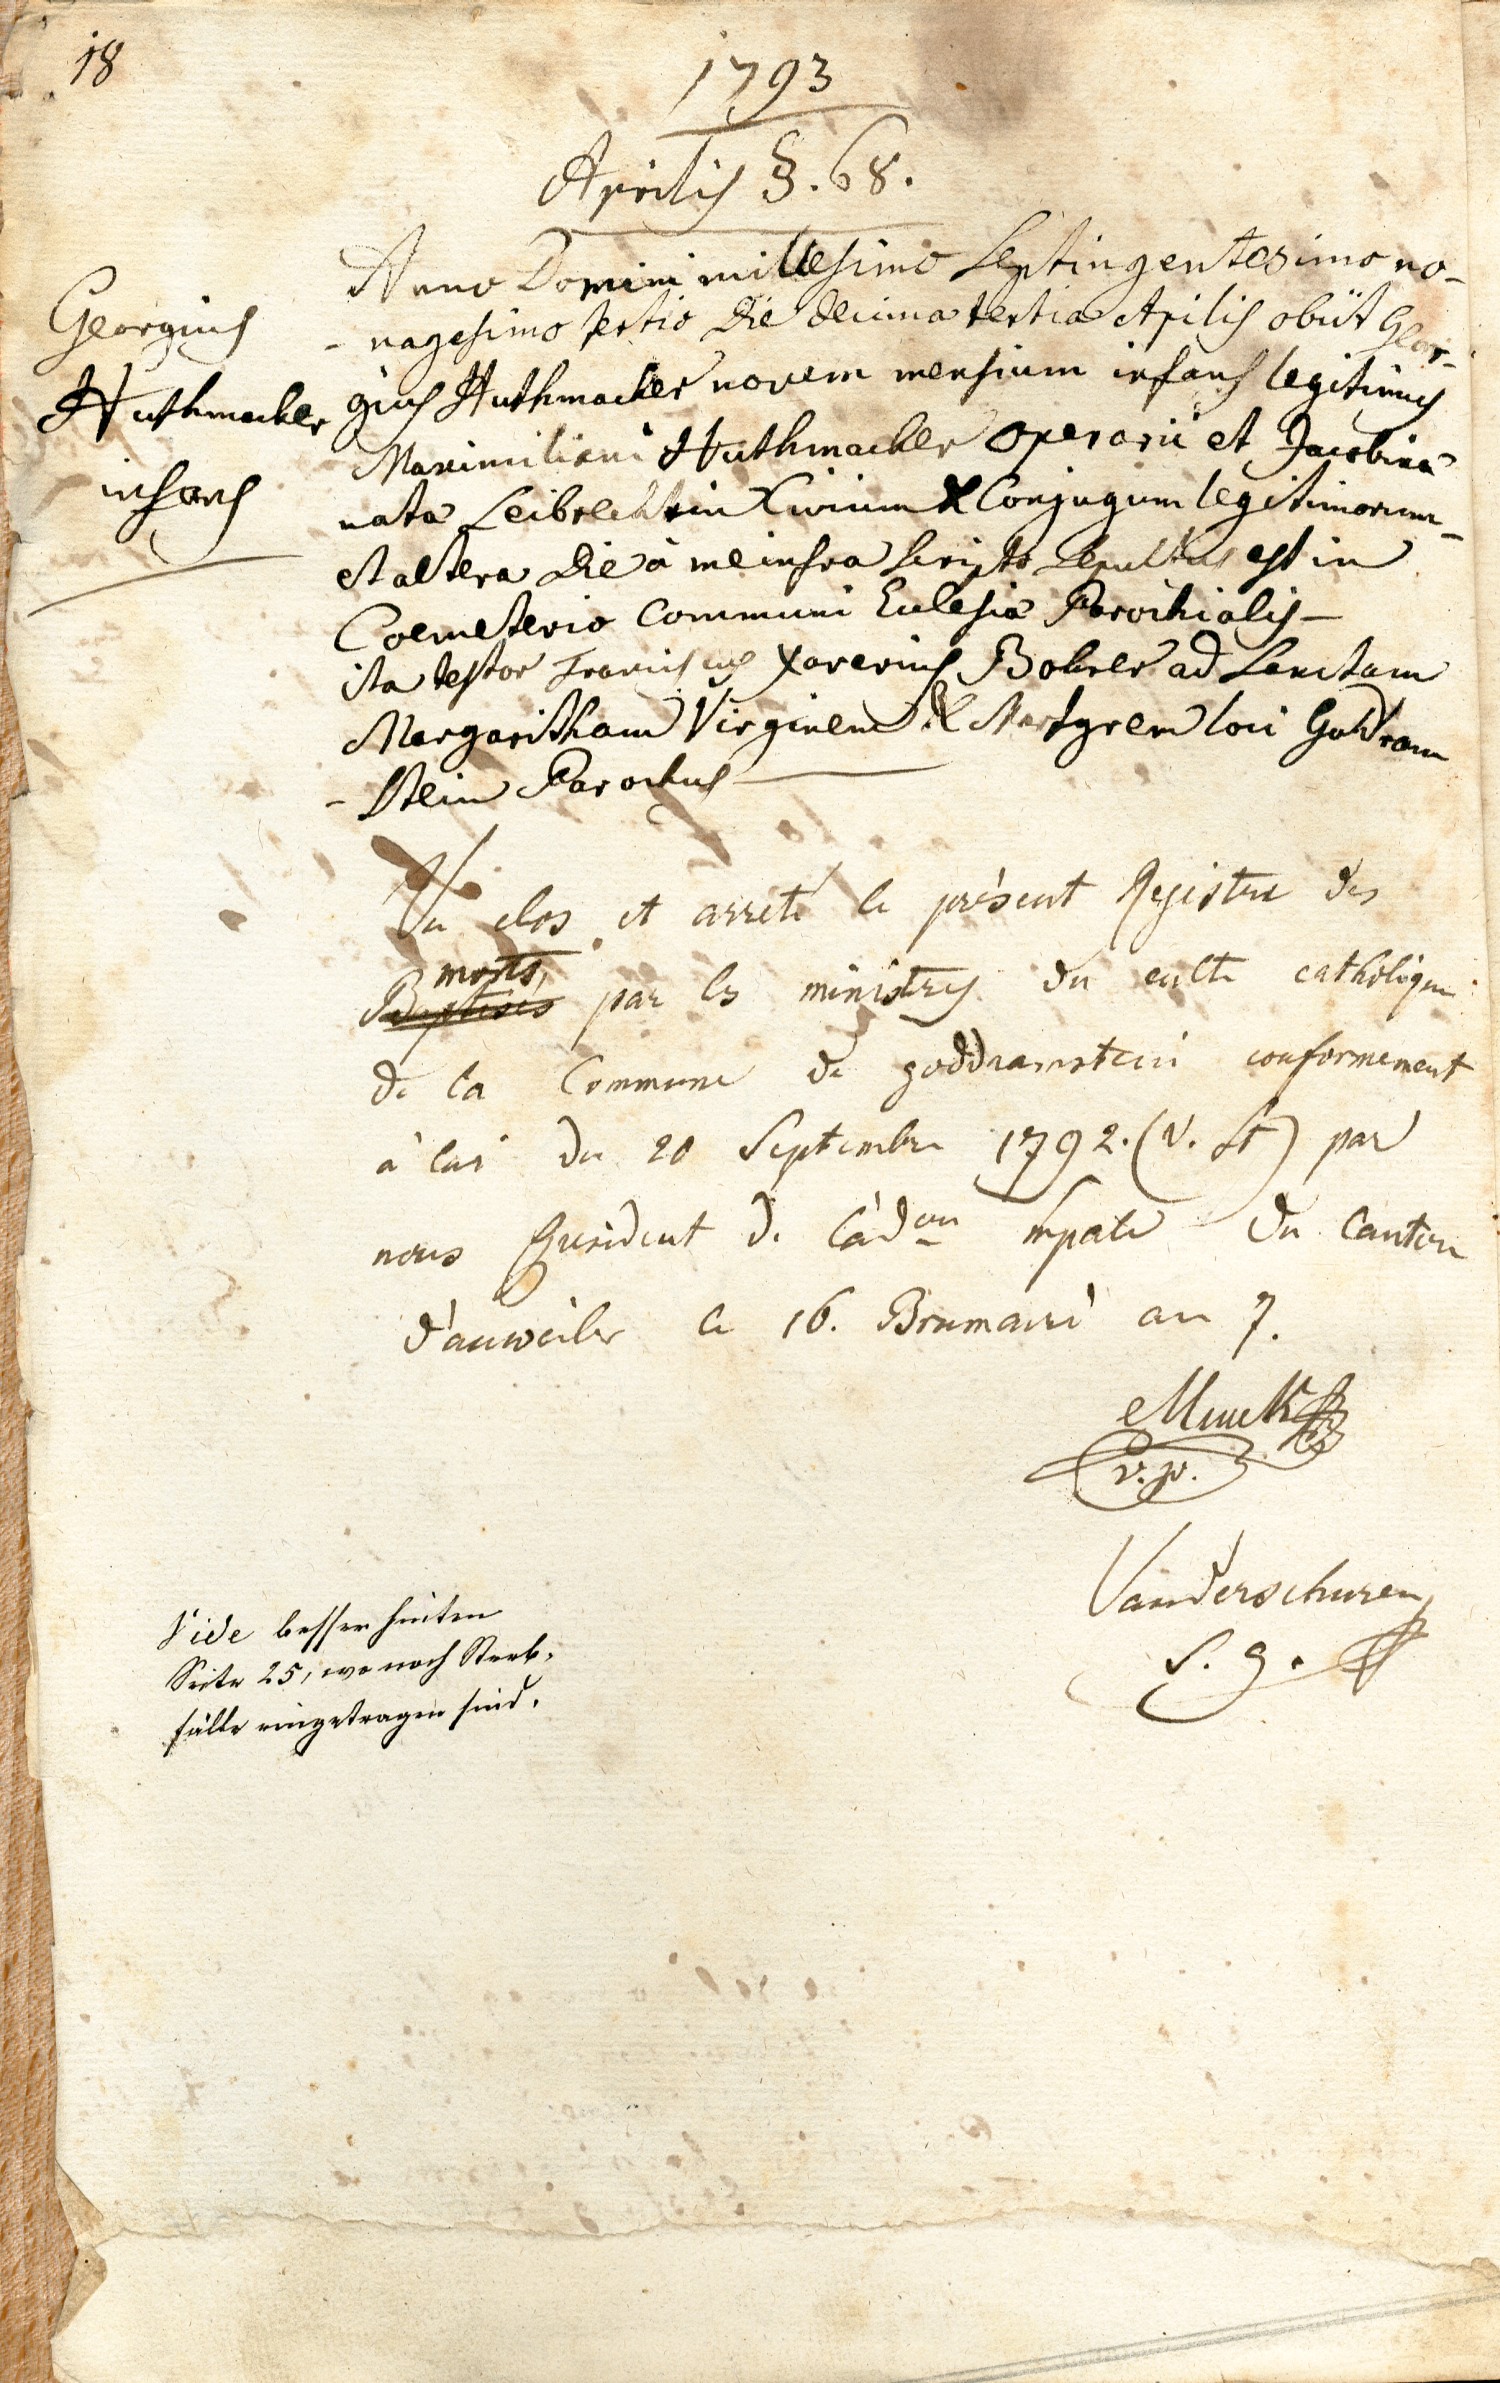 18
1793
Aprilis §. 68.
Georgius
Huthmacher
infans
Anno Domini millesimo Septingentesimo no-
- nagesimo tertio die decima tertia Apilis obiit Geor-
gius Huthmacher novem mensium infans legitimus
Maximiliani Huthmacher operarii et Jacobina
nata Leibrechtin Civium & Conjugum legitimorum
et altera die à me infra scripto sepultus est in
Coemeterio Communi Eclesiæ Parochialis —
ita testor Franciscus Xaverius Bohrer ad Sanctam
Margaritham Virginem & Martyrem loci Godram
- stein Parochus
Vu clos et arreté le présent Registre des
morts,
Baptisés par les ministres du culte catholique
de la Commune de goddramstein conformement
à loi du 20 Septembre 1792. (V. St) par
nous President de l'adon mpale du Canton
d'anweiler le 16. Brumaire an 7.
v. p.
Vanderschuren
S. g.
Vide besser hinten
Seite 25, wo noch Sterb-
fälle eingetragen sind.